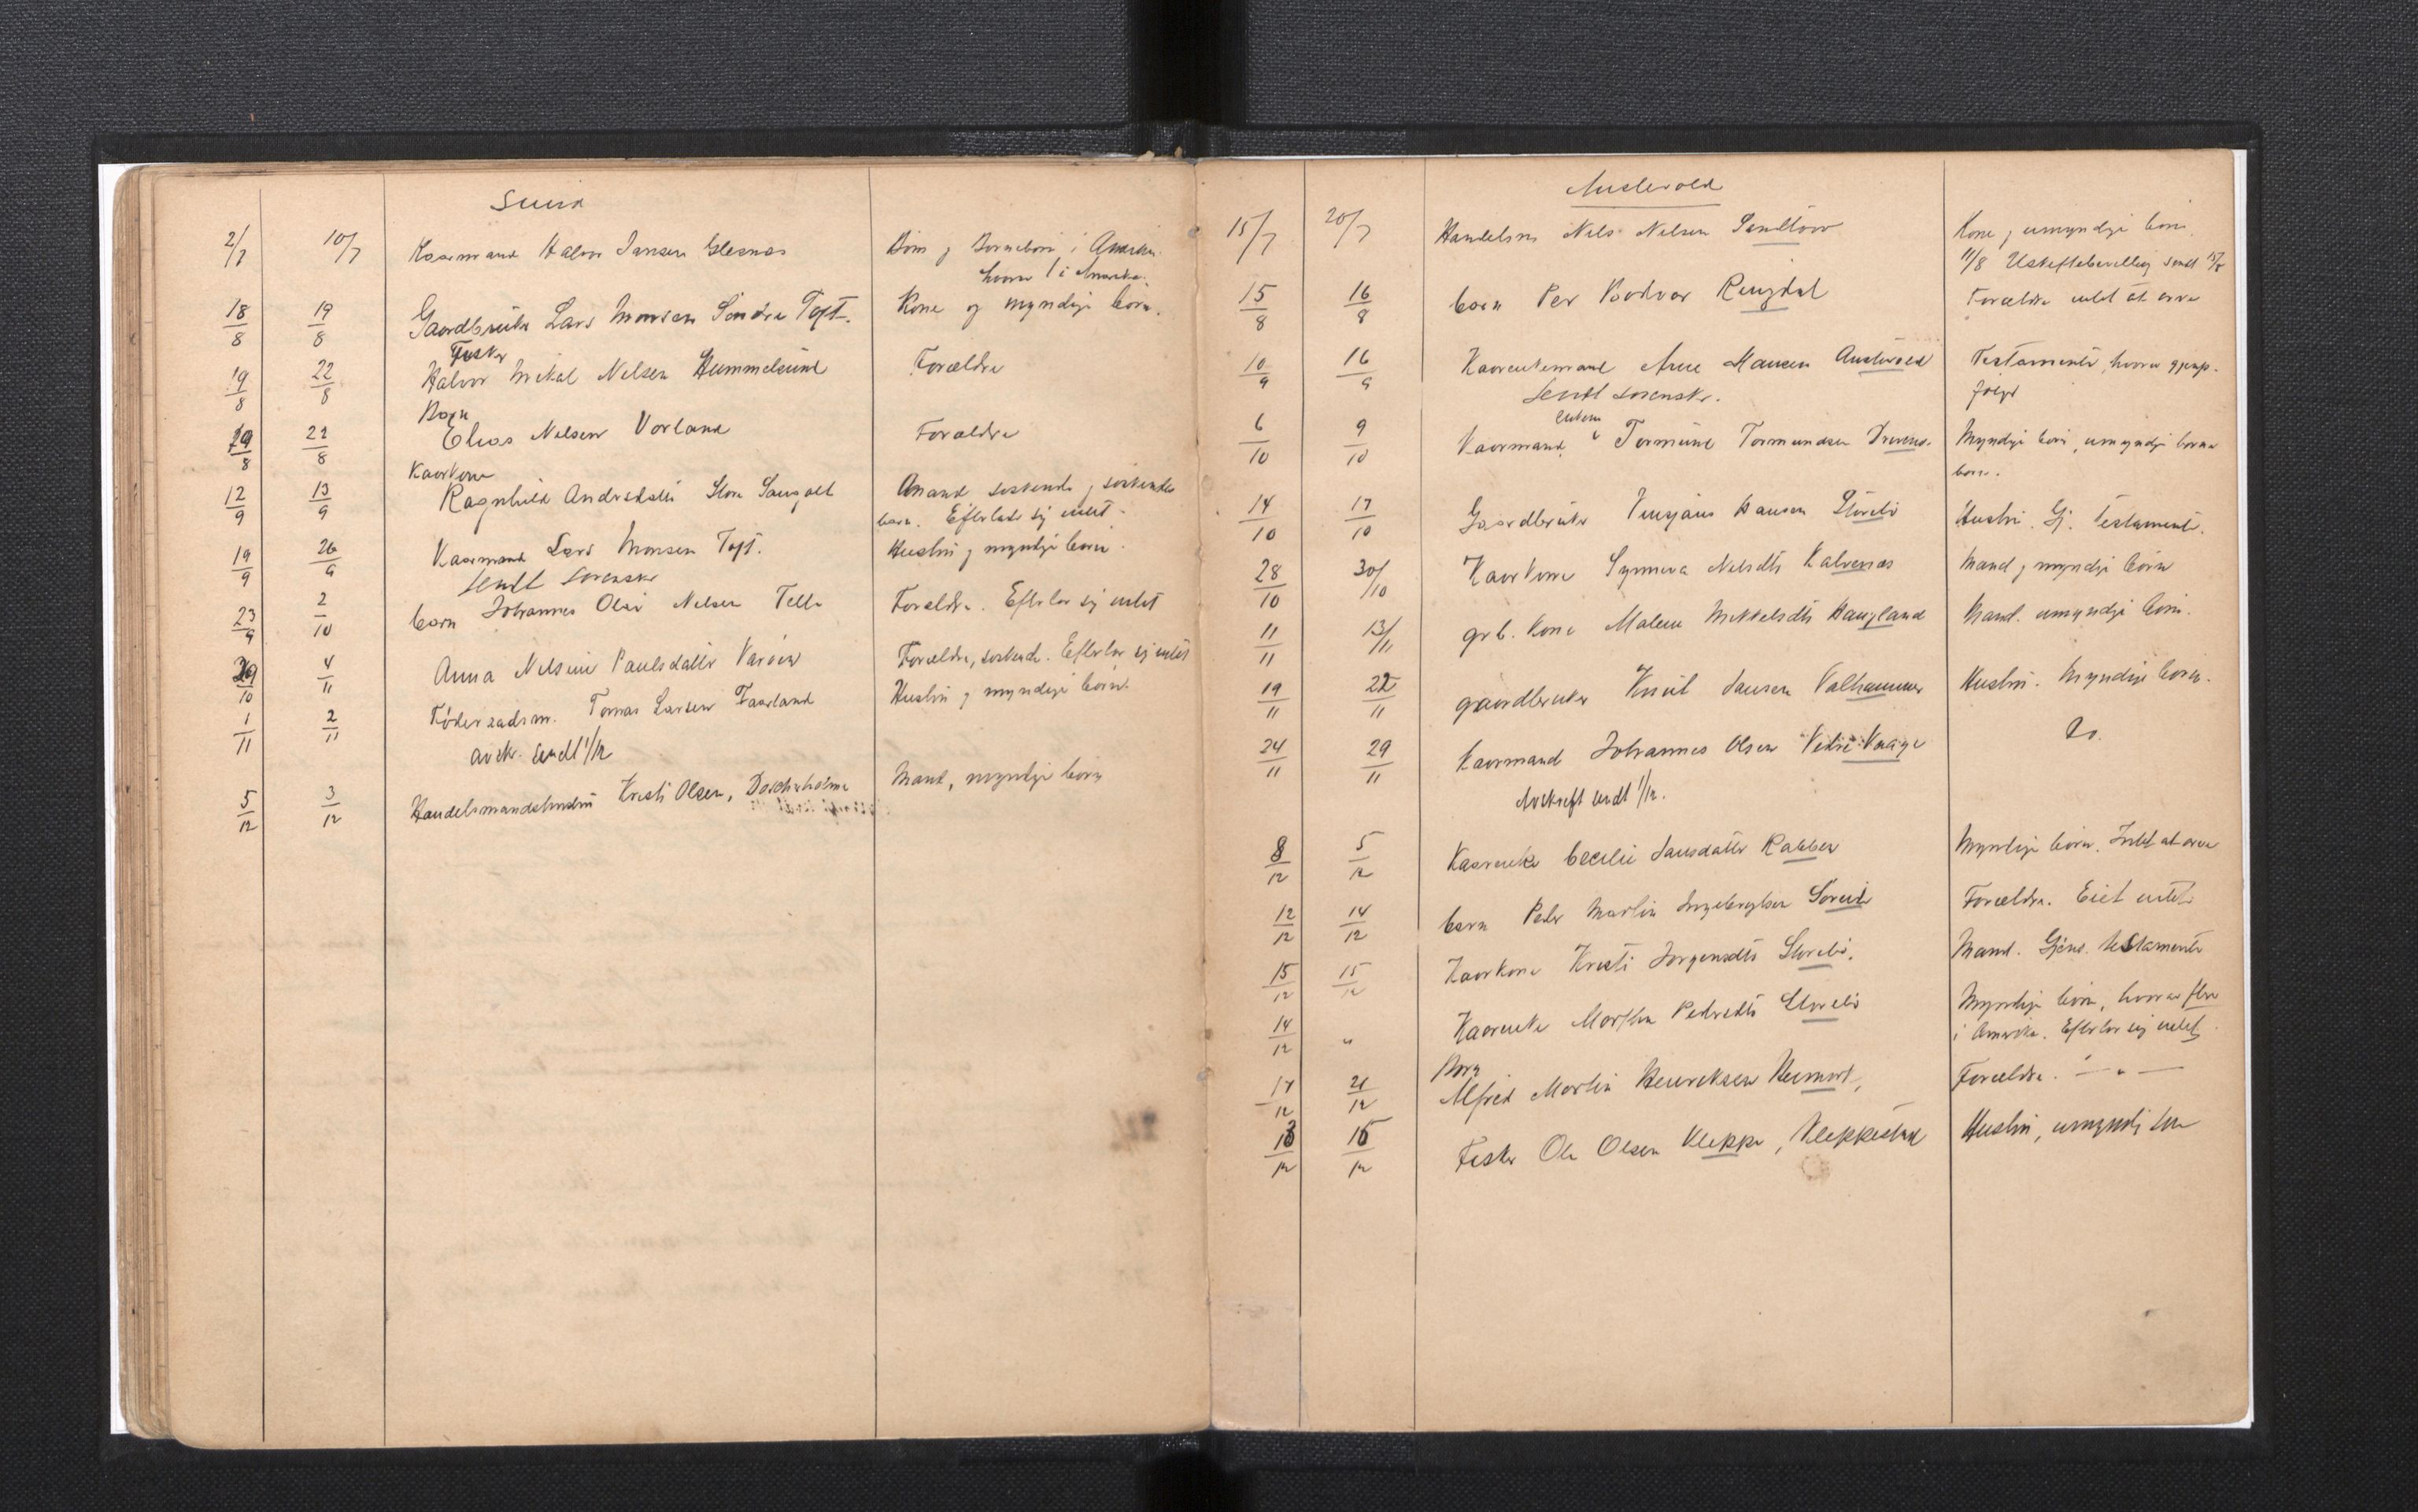 Sund
2/7 10/7 Kaarmand Halvor Jansen Glesnæs Børn og Børnebørn i Amerika
hvorav 1 i Amerika.
18/8 19/8 Gaardbruker Lars Monsen Søndre Toft. Kone og myndige børn.
Fisker
19/8 22/8 Halvor Mikal Nelsen Hummelsund Forældre
Barn
19/8 22/8 Elias Nelsen Vorland Forældre
Kaarkone
12/9 13/9 Ragnhild Andersdatter Store Sangolt Mand søskende, søskende
børn. Efterlate sig intet.
19/9 26/9 Kaarmand Lars Monsen Toft. Hustru og myndige børn.
Sendt sorenskr
23/9 2/10 barn Johannes Olai Nelsen Telle Forældre. Efterlar sig intet
29/10 4/11 Anna Nelsine Paulsdatter Varøen Forældre, søskende. Efterlar sig intet
1/11 2/11 Føderaadsm. Tomas Larsen Faarland Hustru og myndige børn.
avskr. sendt 1/12
5/12 3/12 Handelsmandshustru Kristi Olsen, Mand, myndige børn
Austevold
15/7 20/7 Handelsm Nels Nelsen Kone og umyndige børn.
11/8 Uskiftebevilling sendt
15/8 16/8 barn Per Bodvar Ringdal Forældre intet at arve
10/9 16/9 Kaarenkemand Arne Hansen Austevold Testamente, hvorav gjenp.
Sendt sorenskr. følger
enkem
6/10 9/10 Kaarmand, Tormund Tormundsen Myndige børn, umyndige barne
børn.
14/10 17/10 Gaardbruker Hansen Storebø Hustru. Gj. Testamente.
28/10 30/10 Kaarkone Synneva Nelsdtr Kalvenæs Mand og myndige børn
11/11 13/11 grb. kone Malene Mikkelsdtr Haugland Mand. umyndige børn.
19/11 22/11 gaardbruker Knut Jansen Valhammer Hustru. Myndige børn.
24/11 29/11 Kaarmand Johannes Olsen Vestre Vaage Do.
Avskrift sendt 1/12.
8/12 5/12 Kaarenke Cecilie Jansdatter Rabben Myndige børn. Intet at arve
12/12 14/12 barn Peder Martin Ingebrigtsen Søreide Forældre. Eiet intet.
15/12 15/12 Kaarkone Kristi Jørgensdtr Storebø. Mand. Gjens. testamente
14/12 " Kaarenke Martha Pedersdtr Storebø Myndige børn, hvorav flere
i Amerika. Efterlar sig intet.
Barn
17/12 21/12 Alfred Martin Henriksen Heimark, Forældre. — " —
13/12 15/12 Fisker Ole Olsen Kleppe, Kleppestad Hustru, umyndig søn